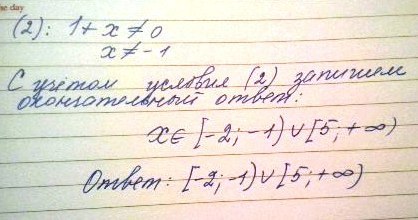 he day
(2): 1 + x ≠ 0
x ≠ -1
С учётом условия (2) запишем
окончательный ответ:
x ∈ [-2; -1) ∪ [5; +∞)
Ответ: [-2; -1) ∪ [5; +∞)